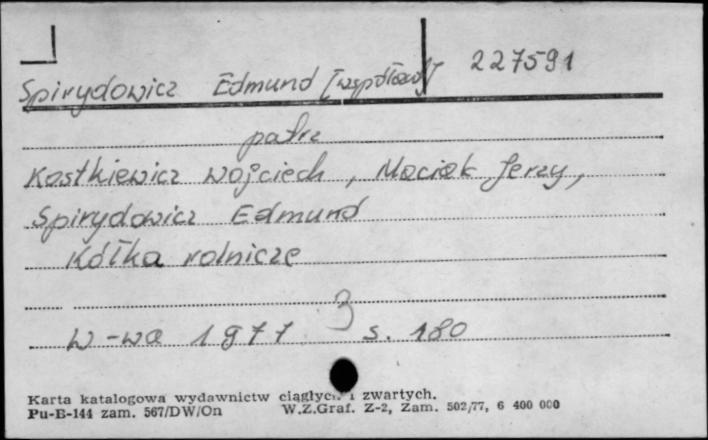 Spirydowicz Edmund [współaut] 227591
patrz
Kostkiewicz Wojciech, Maciak Jerzy,
Spirydowicz Edmund
Kółka rolnicze
3
W-wa 1977 s. 180
Karta katalogowa wydawnictw ciągłych i zwartych.
Pu-B-144 zam. 567/DW/On W.Z.Graf. Z-2, Zam. 502/77, 6 400 000